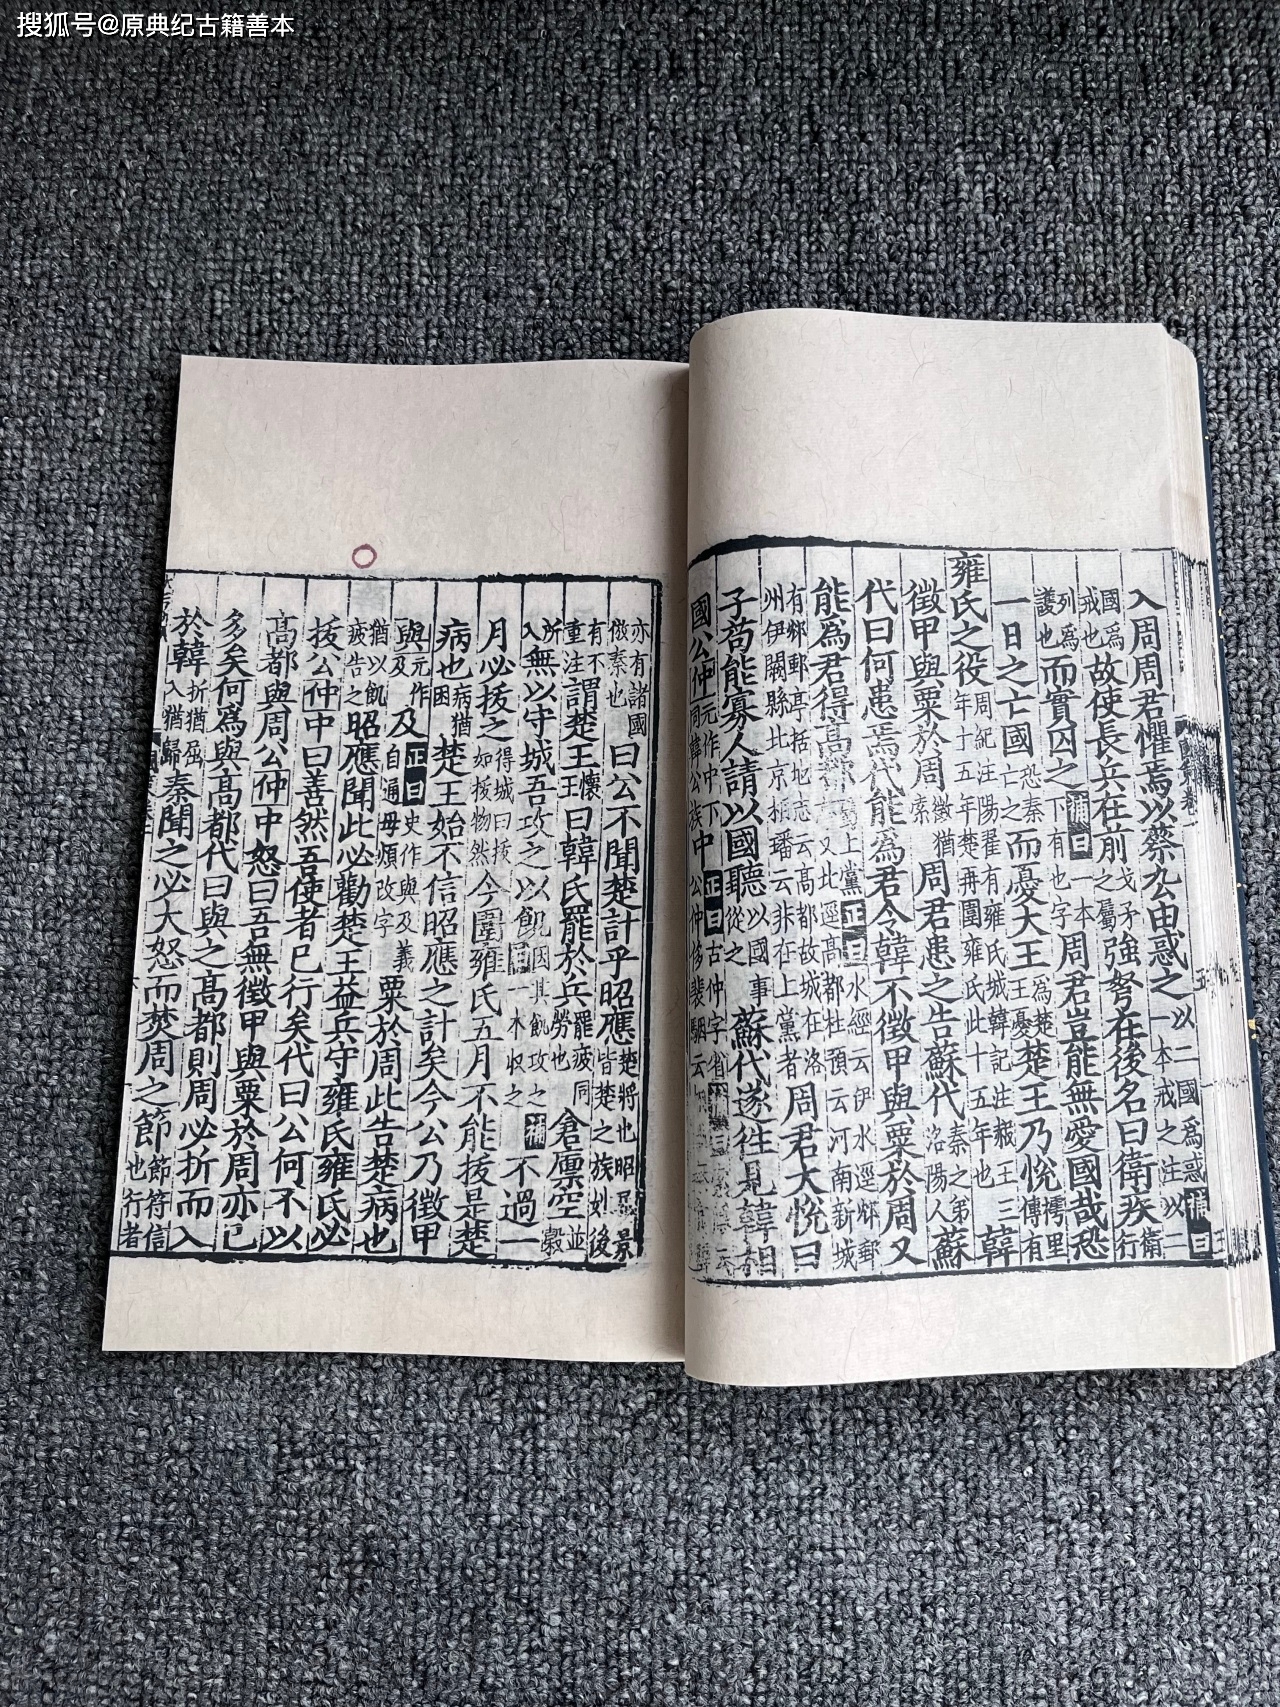 搜狐号@原典纪古籍善本
入周周君懼焉以蔡厹由惑之一本戒之注以二國爲惑補曰
國爲戒也故使長兵在前戈矛之屬強弩在後名曰衛疾衛行
列爲護也而實囚之補曰一本下有也字周君豈能無愛國哉恐
一日之亡國恐秦亡之而憂大王爲楚王憂楚王乃悅樗里傳有
雍氏之役周紀注陽翟有雍氏城韓記注赧王三年十五年楚再圍雍氏此十五年也韓
徵甲與粟於周徵猶索周君患之告蘇代秦之弟洛陽人蘇
代曰何患焉代能爲君令韓不徵甲與粟於周又
能爲君得高都屬上黨正曰水經云伊水逕郵又北逕高都杜預云河南新城
有郵亭括地志云高都故城在洛州伊闕縣北京相璠云非在上黨者周君大悅曰
子苟能寡人請以國聽以國事從之蘇代遂往見韓相
國公仲元作中下同韓公族中正曰古仲字省
亦有諸國倣秦也曰公不聞楚計乎昭應楚將也昭屈景皆楚之族劾後
有不重注謂楚王懷王曰韓氏罷於兵罷疲同勞也倉廩空並
所入無以守城吾攻之以飢因其飢攻之曰一本收之補不過一
月必拔之得城曰拔如拔物然今圍雍氏五月不能拔是楚
病也病猶困楚王始不信昭應之計矣今公乃徵甲
與元作及及正曰史作與及義自通毋煩改字粟於周此告楚病也
猶以飢疲告之昭應聞此必勸楚王益兵守雍氏雍氏必
拔公仲中曰善然吾使者已行矣代曰公何不以
高都與周公仲中怒曰吾無徵甲與粟於周亦已
多矣何爲與高都代曰與之高都則周必折而入
於韓折猶屈入猶歸秦聞之必大怒而焚周之節節符信也行者